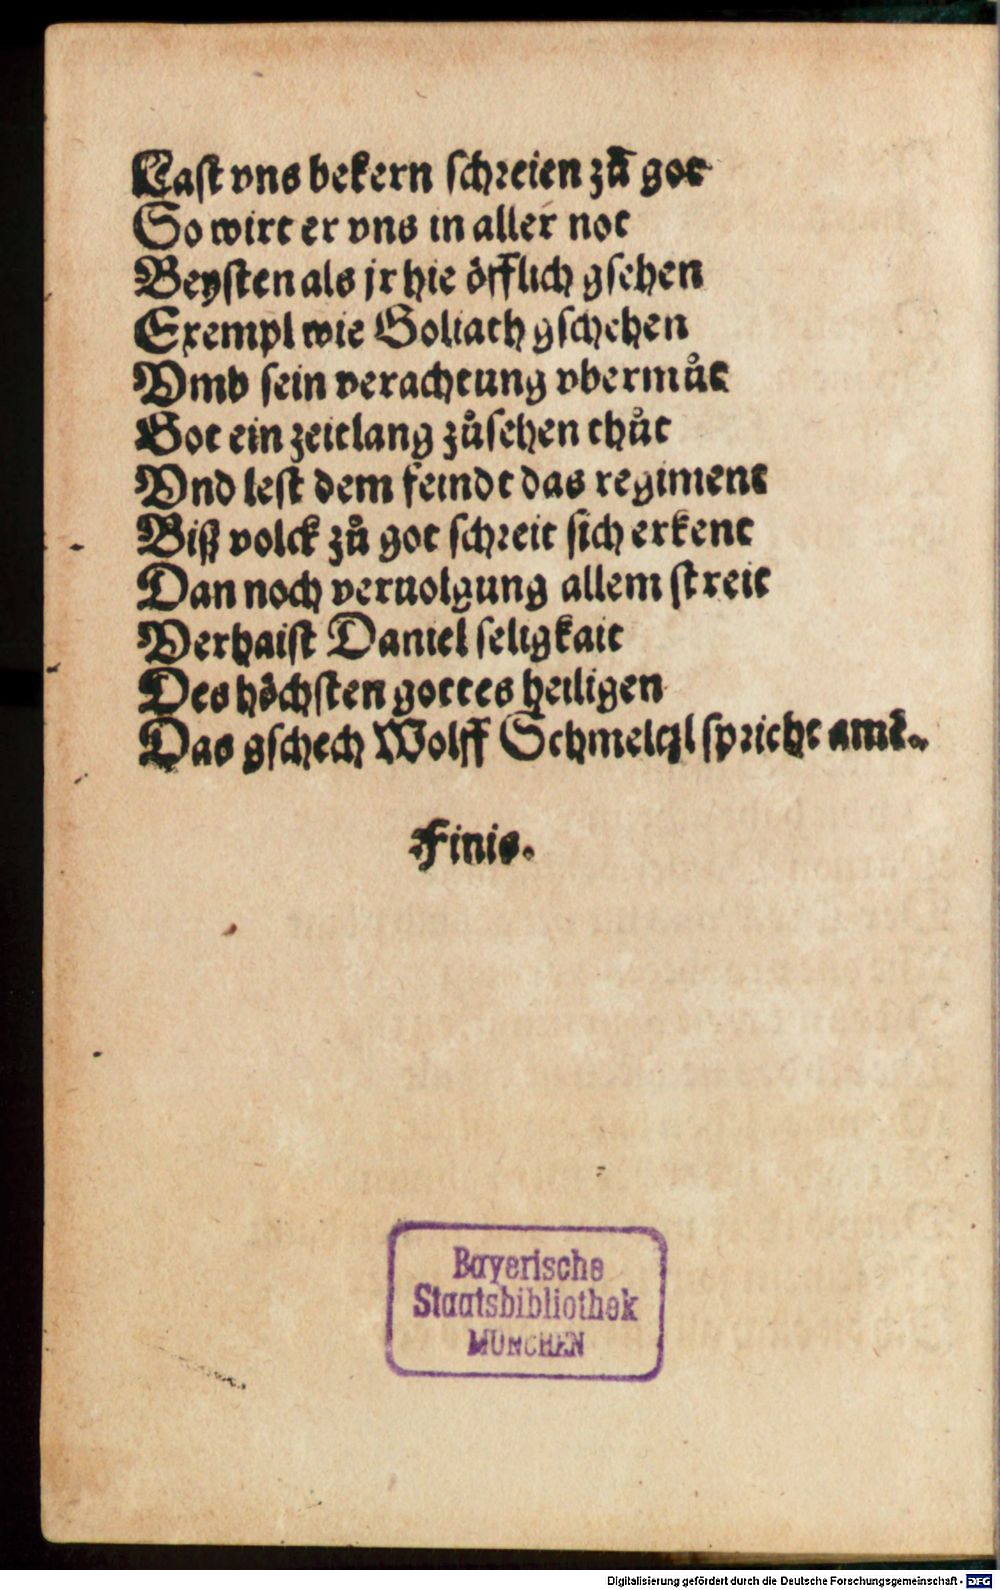 Last vns bekern schreien zů got
So wirt er vns in aller not
Beysten als jr hie öfflich gsehen
Exempl wie Goliath gschehen
Vmb sein verachtung vbermůt
Got ein zeitlang zůsehen thůt
Vnd lest dem feindt das regiment
Biß volck zů got schreit sich erkent
Dan noch veruolgung allem streit
Verhaist Daniel seligkait
Des höchsten gottes heiligen
Das gschech Wolff Schmeltzl spricht amē.
Finis.
Bayerische
Staatsbibliothek
MÜNCHEN
Digitalisierung gefördert durch die Deutsche Forschungsgemeinschaft - DFG